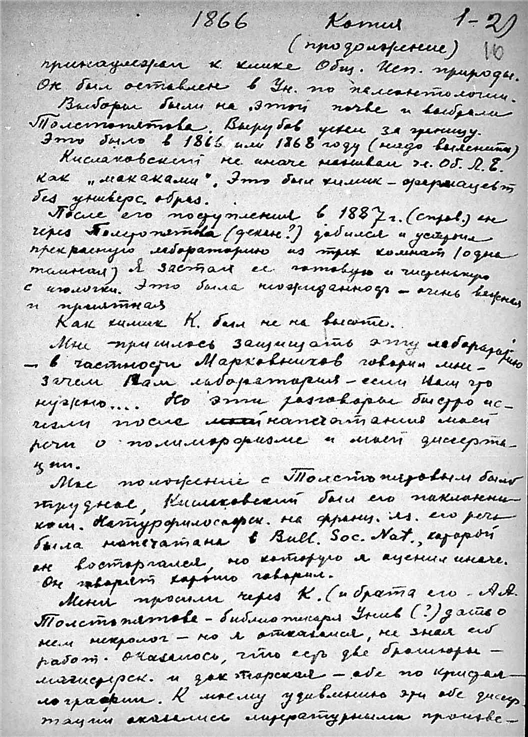 1866 Копия 1-2)
(продолжение) 10
принадлежал к клике Общ. Исп. природы.
Он был оставлен в Ун. по палеонтологии.
Выборы были на этой почве и выбрали
Толстопятова. Вырубов уехал за границу.
Это было в 1866 или 1868 году (надо выяснить)
Кислаковский не иначе называл чл. Об. Л. Е.
как „макаками". Это был химик - фармацевт
без универс. образ.
После его поступления в 1887 г. (справ.) он
через Толстопятова (декан?) добился и устроил
прекрасную лабораторию из трех комнат (одна
темная) Я застал ее готовую и чистенькую
с иголочки. Это была неожиданность - очень важная
и приятная
Как химик К. был не на высоте.
Мне пришлось защищать эту лабораторию
- в частности Марковников говорил мне -
зачем Вам лаборатория - если Вам что
нужно.... Но эти разговоры быстро ис-
чезли после напечатания моей
речи о полиморфизме и моей диссерта-
ции.
Мое положение с Толстопятовым было
трудное, Кислаковский был его поклонни-
ком. Натурфилософск. на франц. яз. его речь
была напечатана в Bull. Soc. Nat., которой
он восторгался, но которую я оценил иначе.
Он говорят хорошо говорил.
Меня просили через К. (и брата его - А.А.
Толстопятова - библиотекаря Унив (?) дать о
нем некролог - но я отказался, не зная его
работ. Оказалось, что есть две брошюры -
магистерск. и докторская - обе по кристал-
лографии. К моему удивлению эти обе диссер-
тации оказались литературными произве-